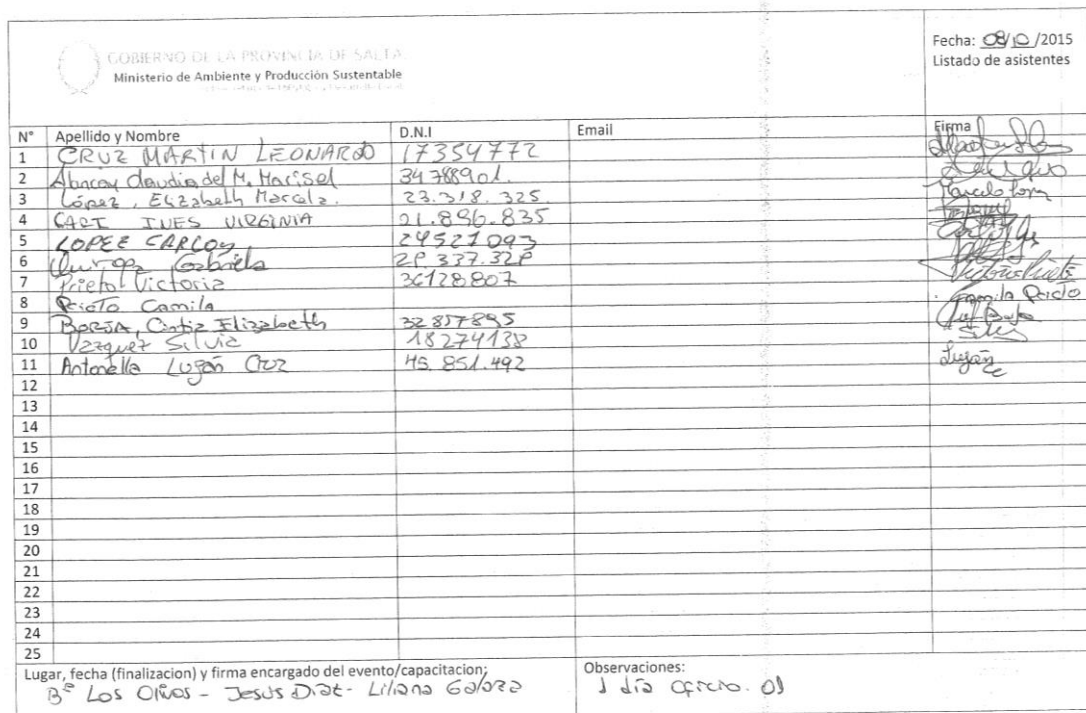 GOBIERNO DE LA PROVINCIA DE SALTA
Ministerio de Ambiente y Producción Sustentable
Fecha: 08/10/2015
Listado de asistentes
N° Apellido y Nombre D.N.I Email Firma
1 CRUZ MARTIN LEONARDO 17354772
2 Abncay Claudia del M. Marisel 34788901.
3 López, Elizabeth Marcela. 23.318.325.
4 CARI INES VIRGINIA 21.896.835
5 LOPEZ CARLOS 24521093
6 Gabriela 28 337.328
7 Prieto Victoria 36128807 Victoria Prieto
8 Prieto Camila Camila Prieto
9 BORJA, Cintia Elizabeth 32857895
10 Vazquez Silvia 18274138
11 Antonella Luján Cruz 45.851.492 Luján
12
13
14
15
16
17
18
19
20
21
22
23
24
25
Lugar, fecha (finalizacion) y firma encargado del evento/capacitacion;
B° Los Olivos - Jesús Diaz - Liliana Galarza
Observaciones:
1 día